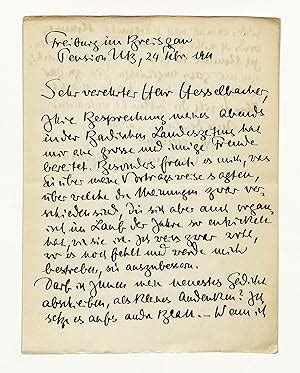 Freiburg im Breisgau
Pension Utz, 24 Febr. 1911
Sehr verehrter Herr Hesselbacher,
Ihre Besprechung meines Abends
in der Badischen Landeszeitung hat
mir eine grosse und innige Freude
bereitet. Besonders freute es mich, was
Sie über meine Vortragsweise sagten,
über welche die Meinungen zwar ver-
schieden sind, die sich aber auch organ-
isch im Laufe der Jahre so entwickelt
hat, wie sie ist. Ich weiss zwar wohl,
wo es noch fehlt und werde mich
bestreben, sie auszubessern.
Darf ich Ihnen mein neuestes Gedicht
abschreiben, als kleines Andenken? Ich
setze es aufs andre Blatt. – Wenn ich